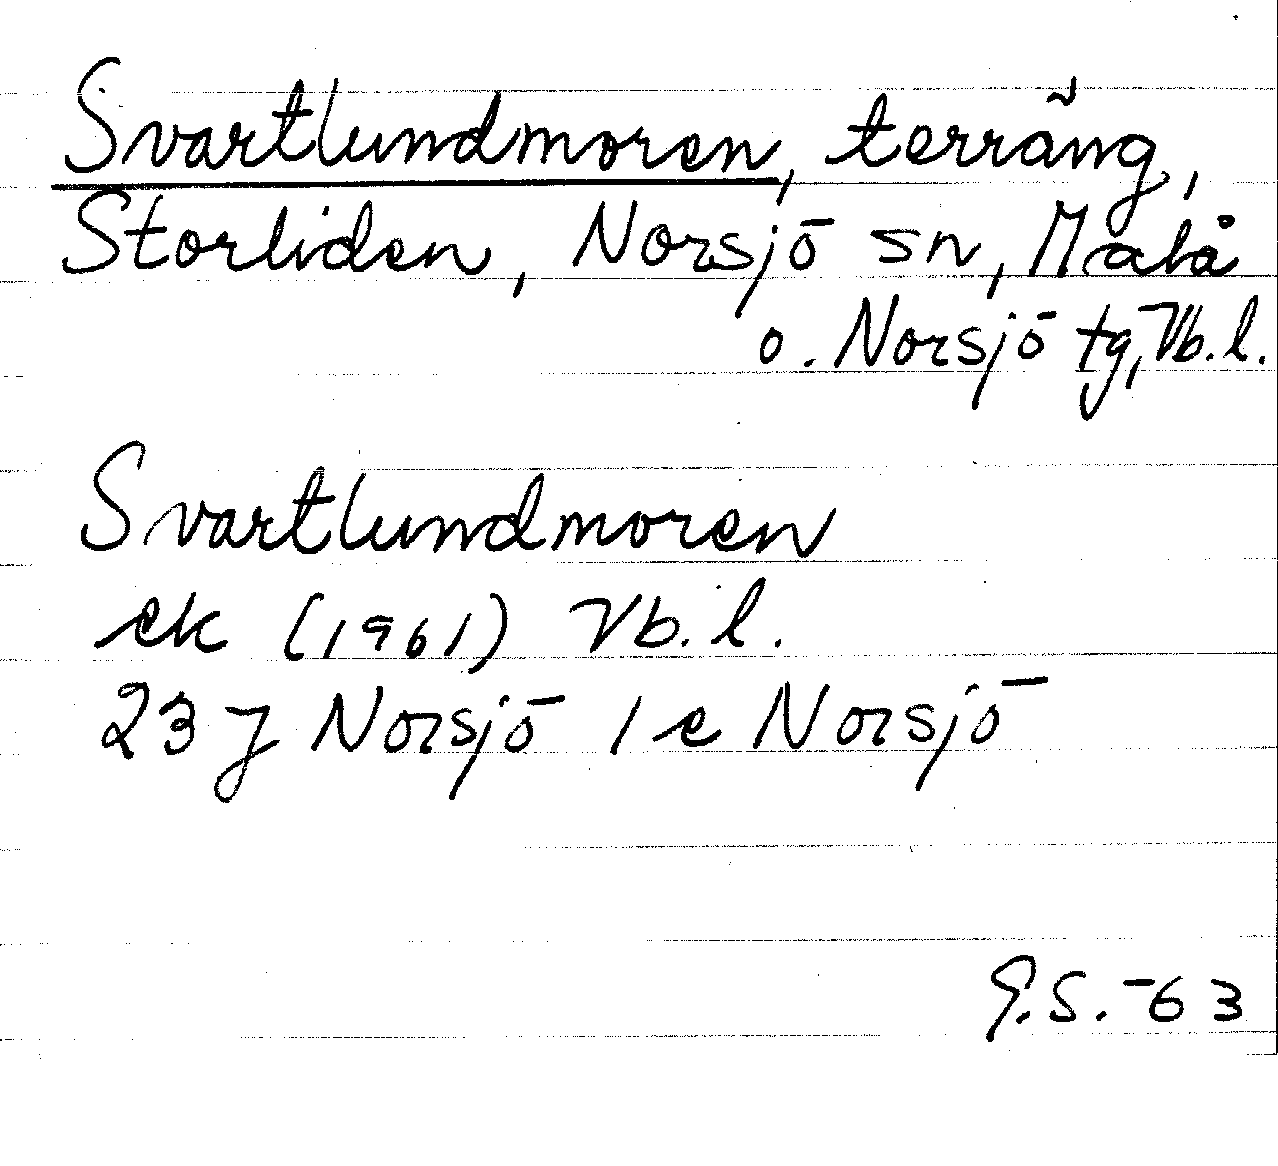 Svartlundmoren, terräng,
Storliden, Norsjö sn, Malå
o. Norsjö tg, Vb.l.
Svartlundmoren
ek (1961) Vb.l.
23 J Norsjö 1 e Norsjö
G.S. -63